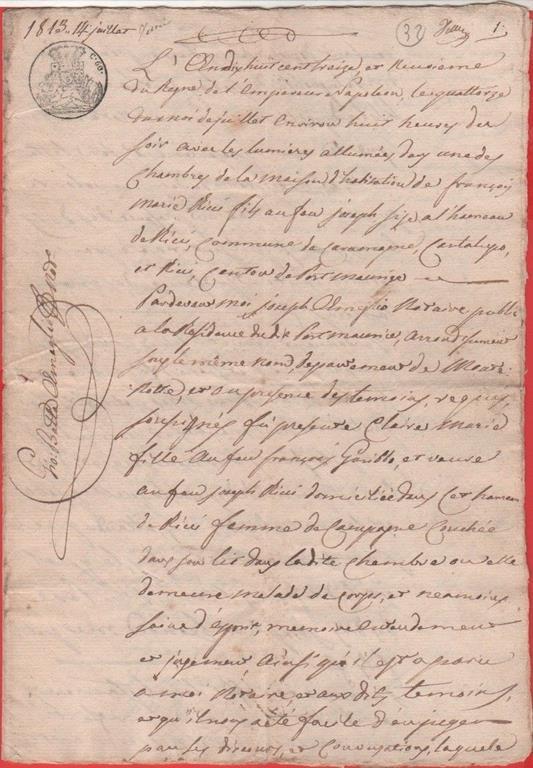 1813. 14 juillet
32
1
L'An dix huit cent treize, et neuvieme
du Regne de l'Empereur Napoleon, le quattorze
du mois de juillet environ huit heures du
soir avec les lumières allumées dans une des
Chambres de la maison d'habitation de françois
Marie Ricci fils au feu joseph size a l'hameau
de Ricci, Commune de Caramagne, Cantalupo,
et Ricci, Canton de Port Maurice
Pardevant Moi joseph Notaire public
a la Résidence du dit Port Maurice, arrondissement
sous le même nom, departement de Mont
notte, et au presence des temoins, requis,
soussignés fu presente Claire Marie
fille au feu françois, et veuve
au feu joseph Ricci domiciliée dans cet hameau
de Ricci femme de Campagne Couchée
dans son lit dans ladite Chambre ou elle
demeure malade de Corps, et neamoins
saine d'esprit, memoire entendement
et jugement ainsi qu'il est aparu
a moi Notaire et aux dits temoins,
et qu'il nous a été facile d'en juger
par ses discours, et Conversations, laquele